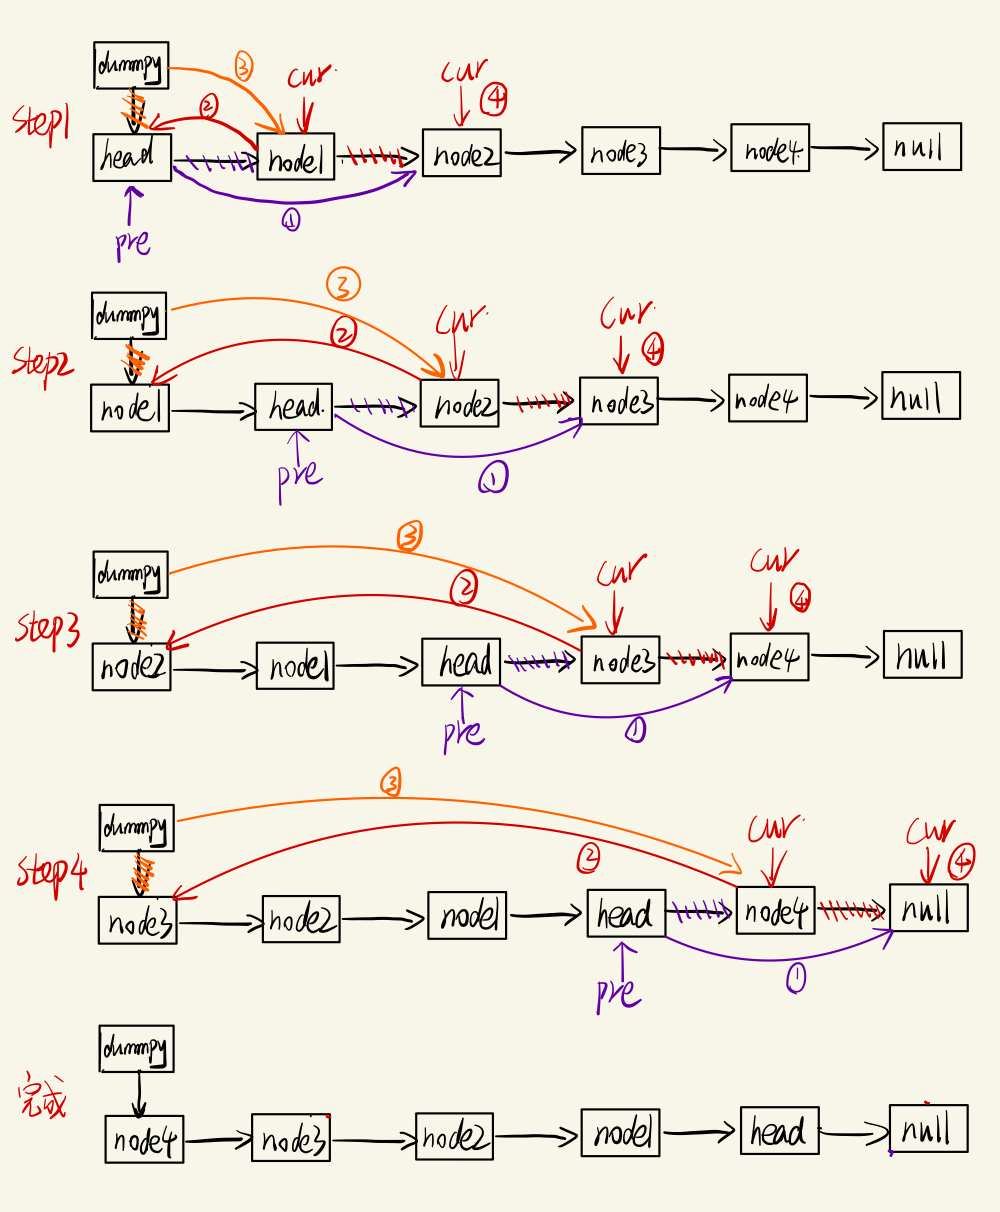 dummpy
③ cur. cur
Step1 ② ④
head node1 node2 node3 node4 null
①
pre
③
dummpy cur. cur.
Step2 ② ④
node1 head. node2 node3 node4 null
pre ①
③
dummpy ② cur cur
Step3 ④
node2 node1 head node3 node4 null
pre ①
③
dummpy cur. cur
Step4 ② ④
node3 node2 node1 head node4 null
pre ①
dummpy
完成
node4 node3 node2 node1 head null